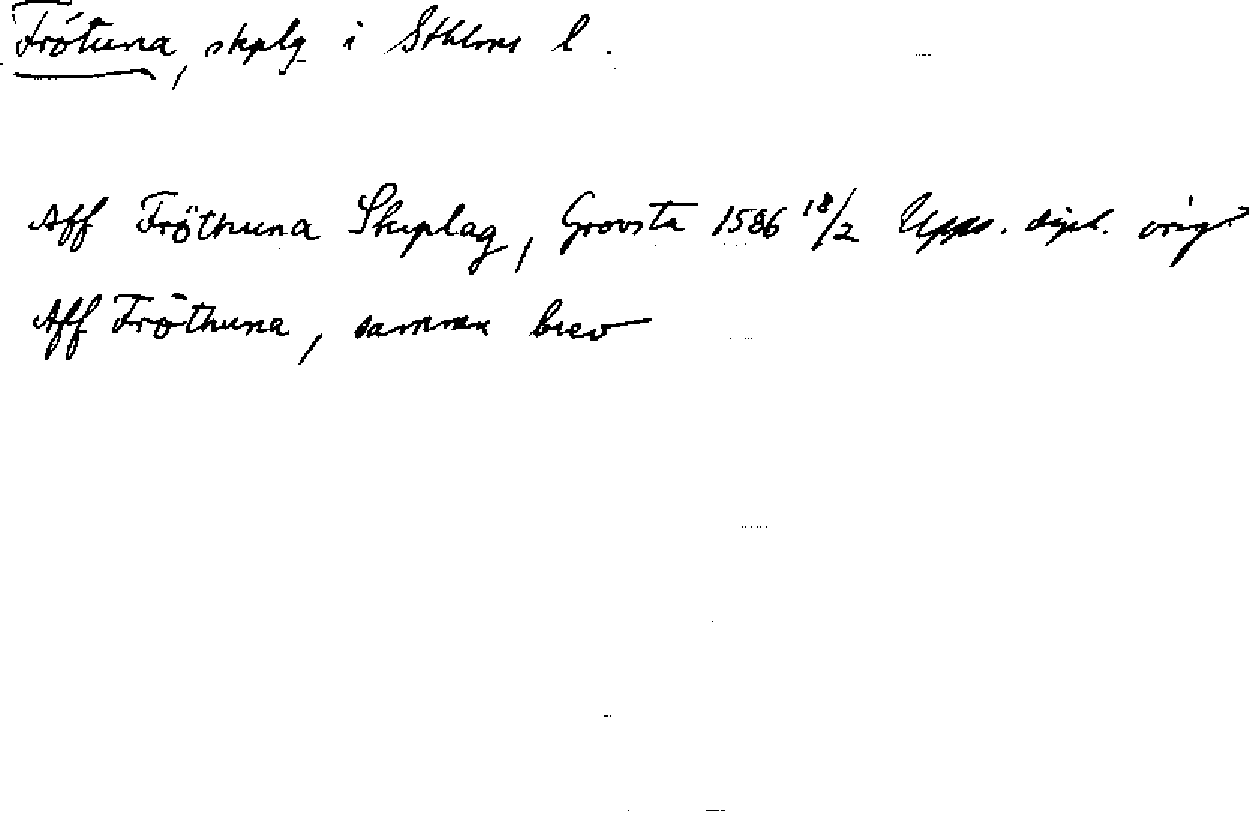 Frötuna, skplg i Sthlms l.
Aff Fröthuna Skiplag, Grovsta 1586 18/2 Upps. dipl. orig
Aff Fröthuna, samma brev